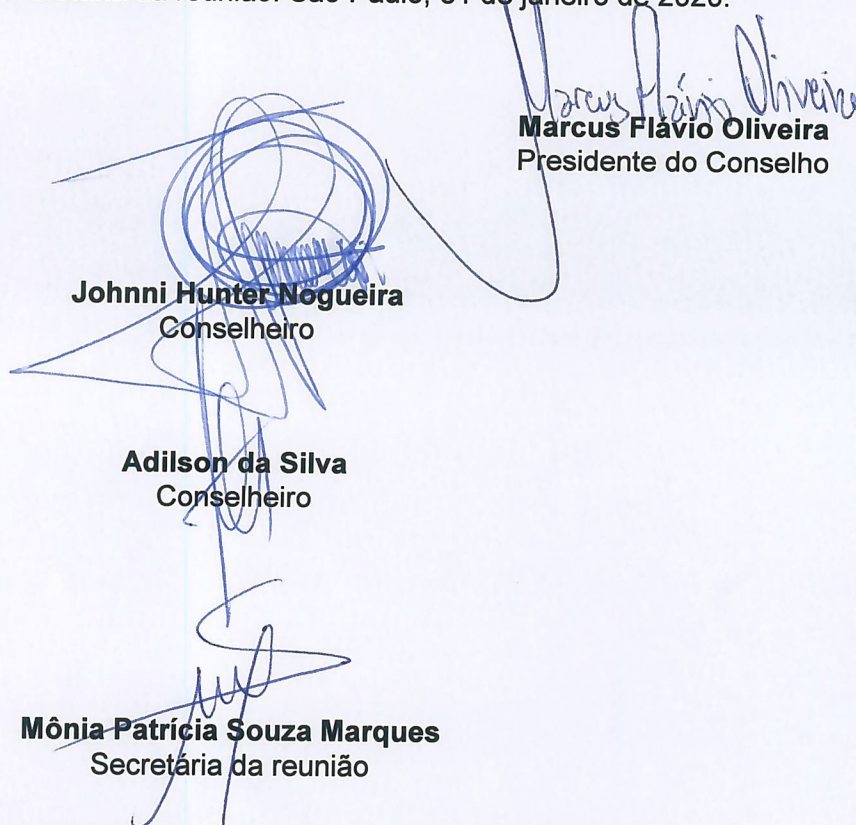 São Paulo, 31 de janeiro de 2020.
Marcus Flávio Oliveira
Marcus Flávio Oliveira
Presidente do Conselho
Johnni Hunter Nogueira
Conselheiro
Adilson da Silva
Conselheiro
Mônia Patrícia Souza Marques
Secretária da reunião